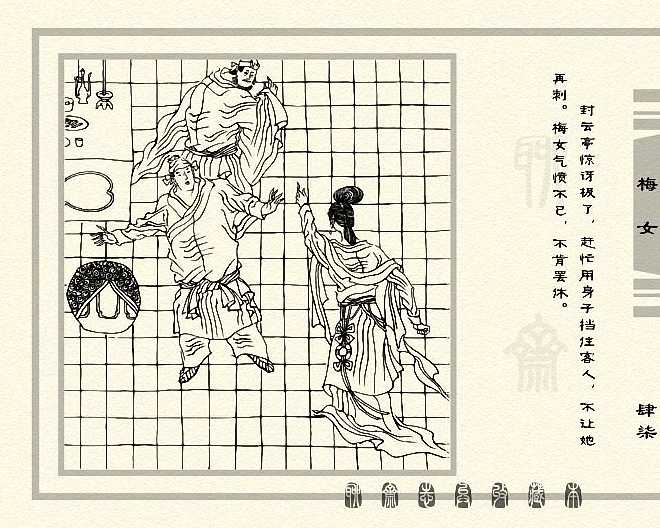 梅女
肆柒
封云亭惊讶极了，赶忙用身子挡住客人，不让她
再刺。梅女气愤不已，不肯罢休。
聊斋志异珍藏本